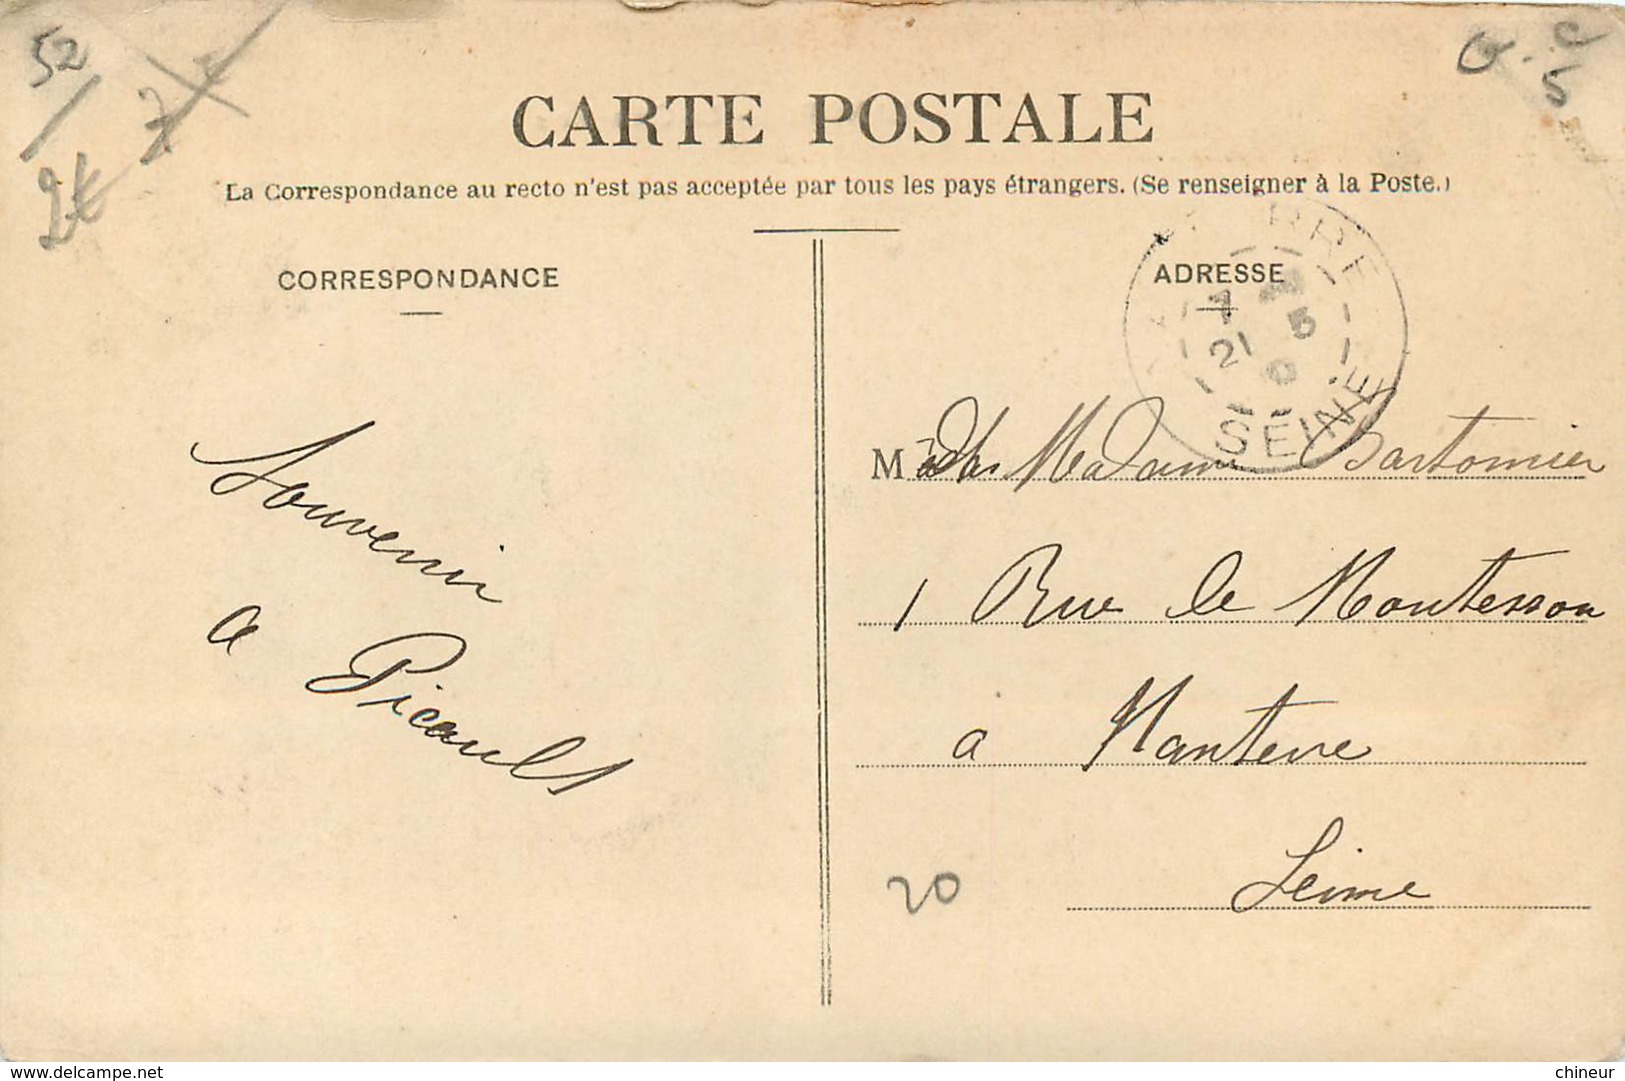 52
7€
2€
CARTE POSTALE
La Correspondance au recto n'est pas acceptée par tous les pays étrangers. (Se renseigner à la Poste.)
CORRESPONDANCE
Souvenir
a
Picault
ADRESSE
7
21 5
SEINE
M Madame Bartomier
1 Rue de Montesson
a Nanterre
Seine
20
5
www.delcampe.net
chineur